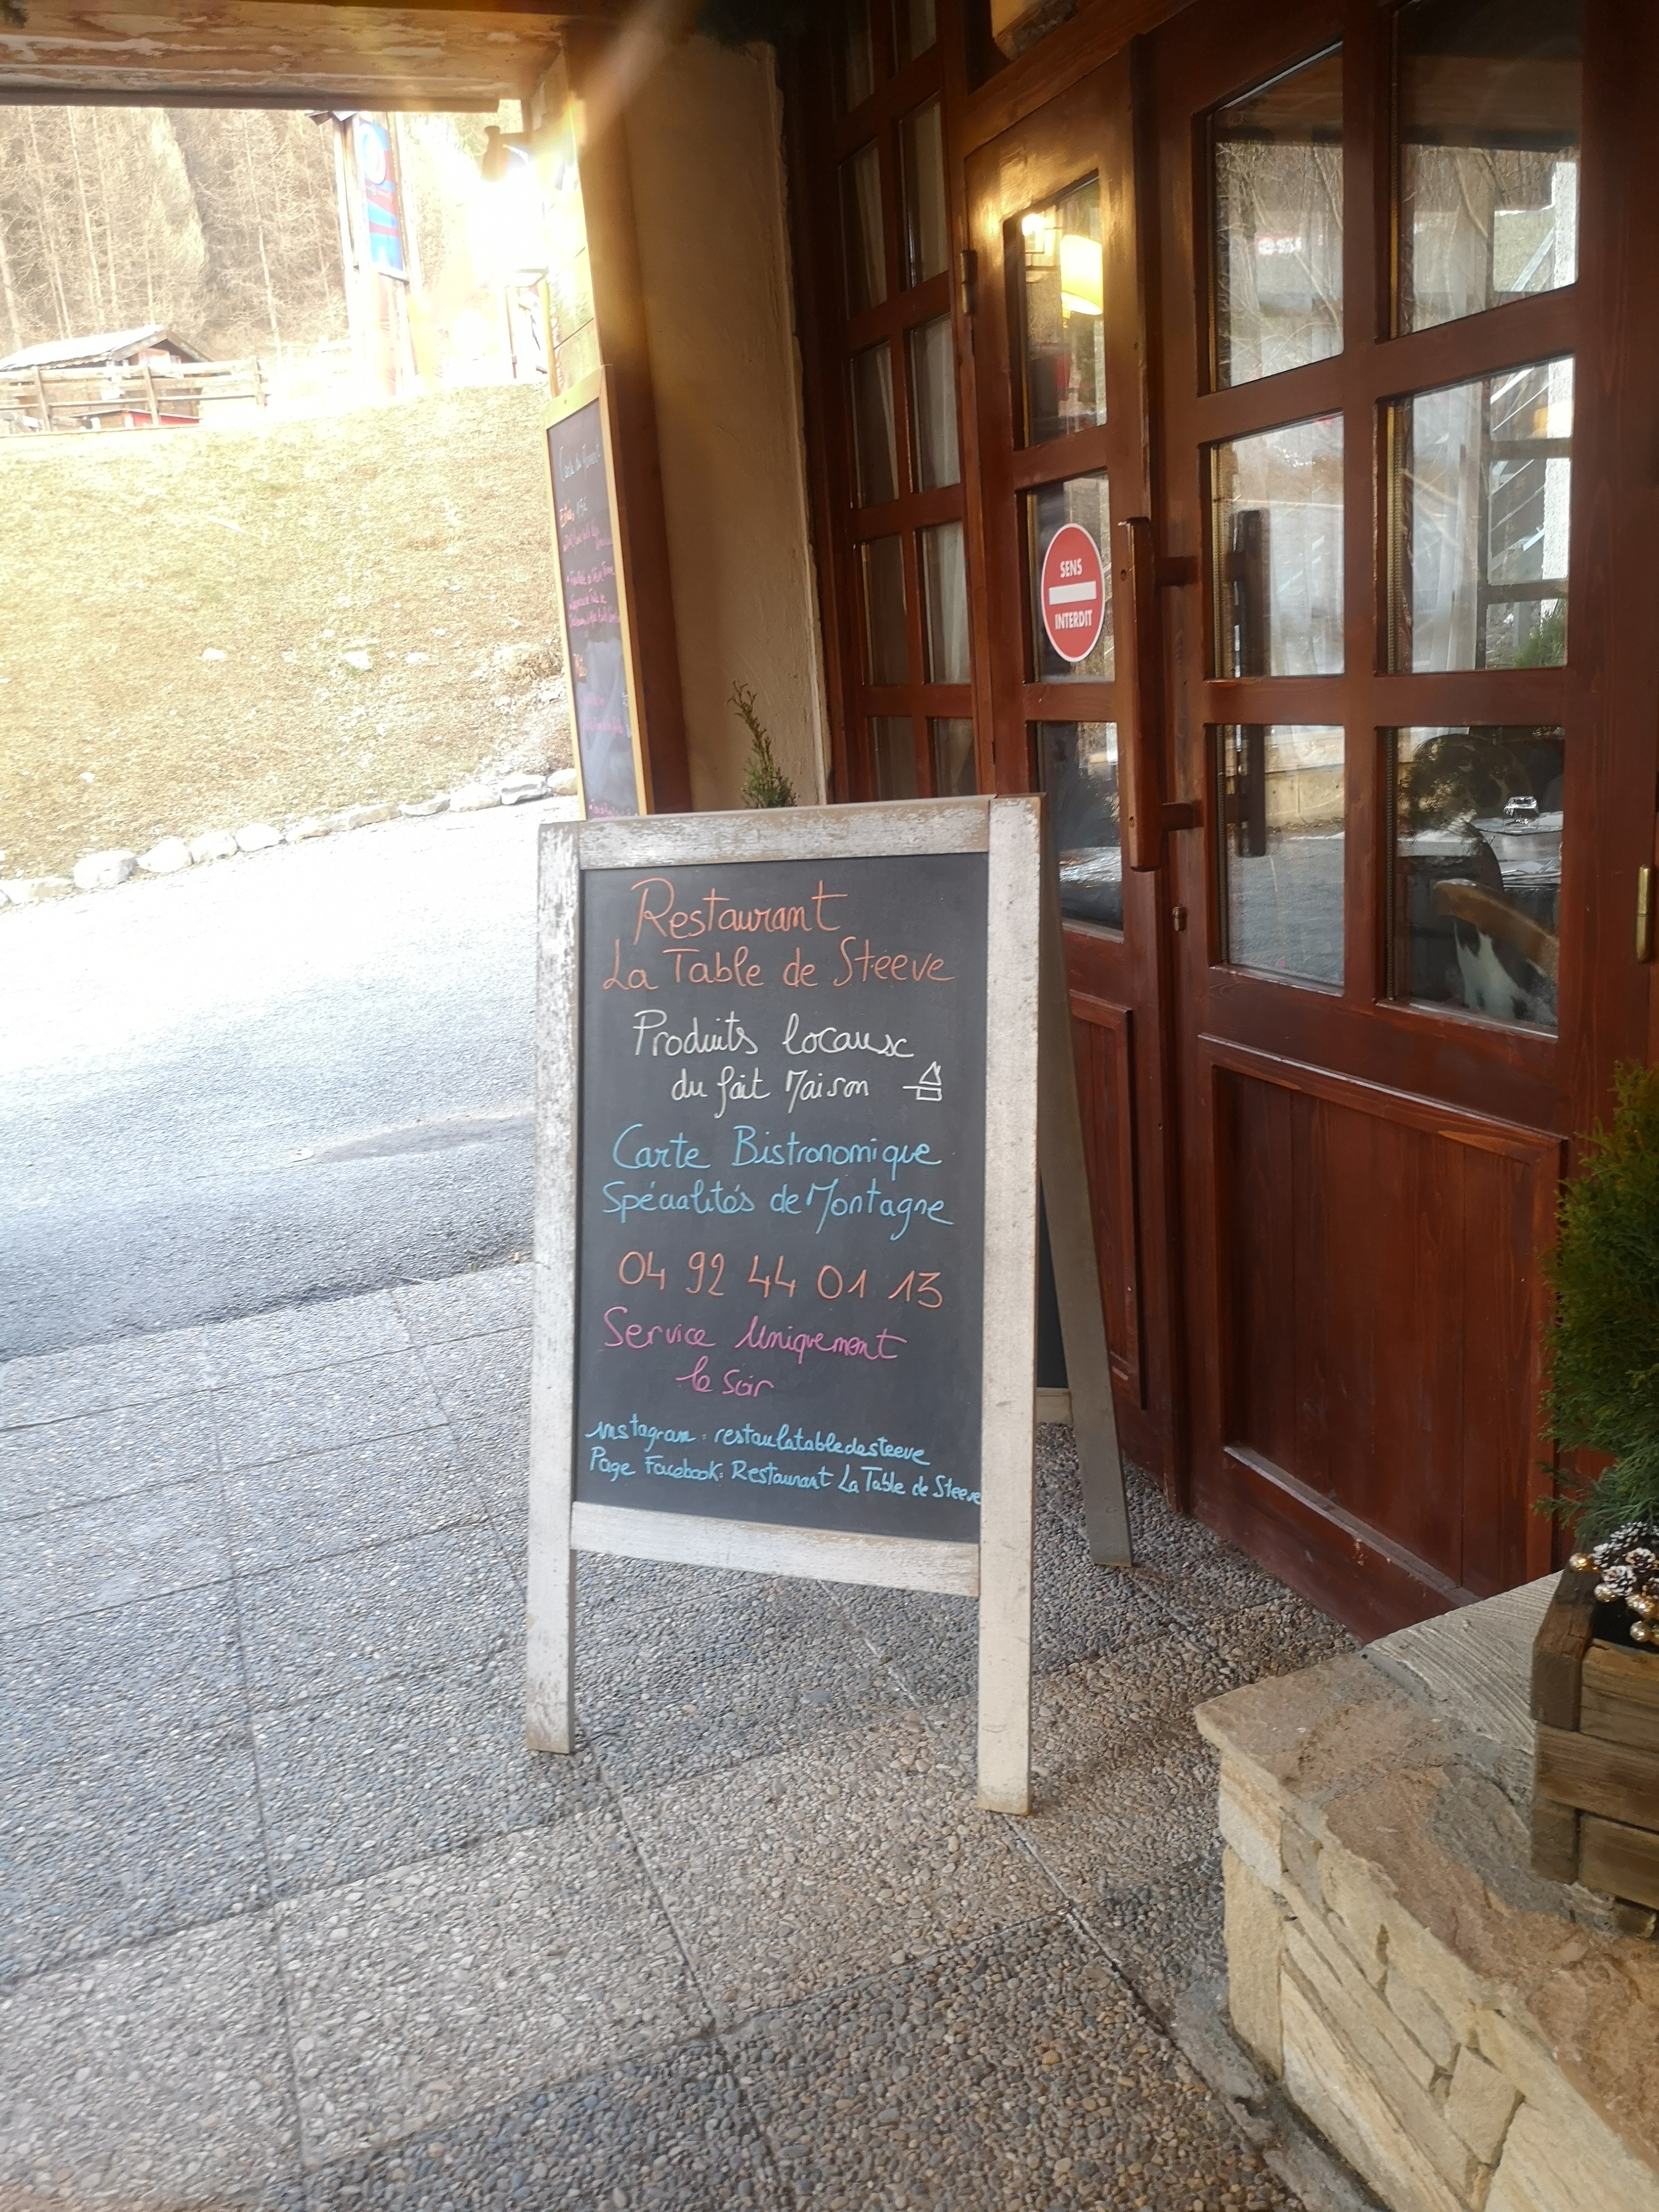 Restaurant
La Table de Steeve
Produits locaux
du fait Maison
Carte Bistronomique
Spécialités de Montagne
04 92 44 01 13
Service Uniquement
le Soir
instagram : restaulatabledesteeve
Page Facebook: Restaurant La Table de Steeve
SENS
INTERDIT